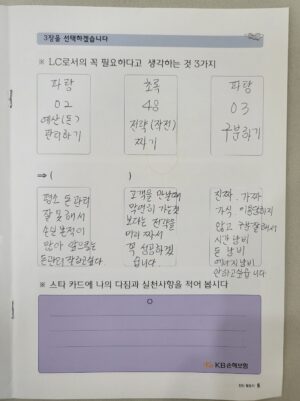 3장을 선택하겠습니다
※ LC로서의 꼭 필요하다고 생각하는 것 3가지
파랑
02
예산(돈)
관리하기
초록
48
전략(작전)
짜기
파랑
03
구분하기
⇒ (                    )
평소 돈관리
잘 못해서
손실 본적이
많아 앞으로는
돈관리 잘하고싶다.
고객을 만날때
막연히 가는것
보다는 전략을
미리 짜서
꼭 성공하겠
습니다.
진짜, 가짜
가식 이용당하지
않고 구분잘해서
시간 낭비
돈 낭비
에너지 낭비
안하고싶습니다
※ 스타 카드에 나의 다짐과 실천사항을 적어 봅시다
KB손해보험
6